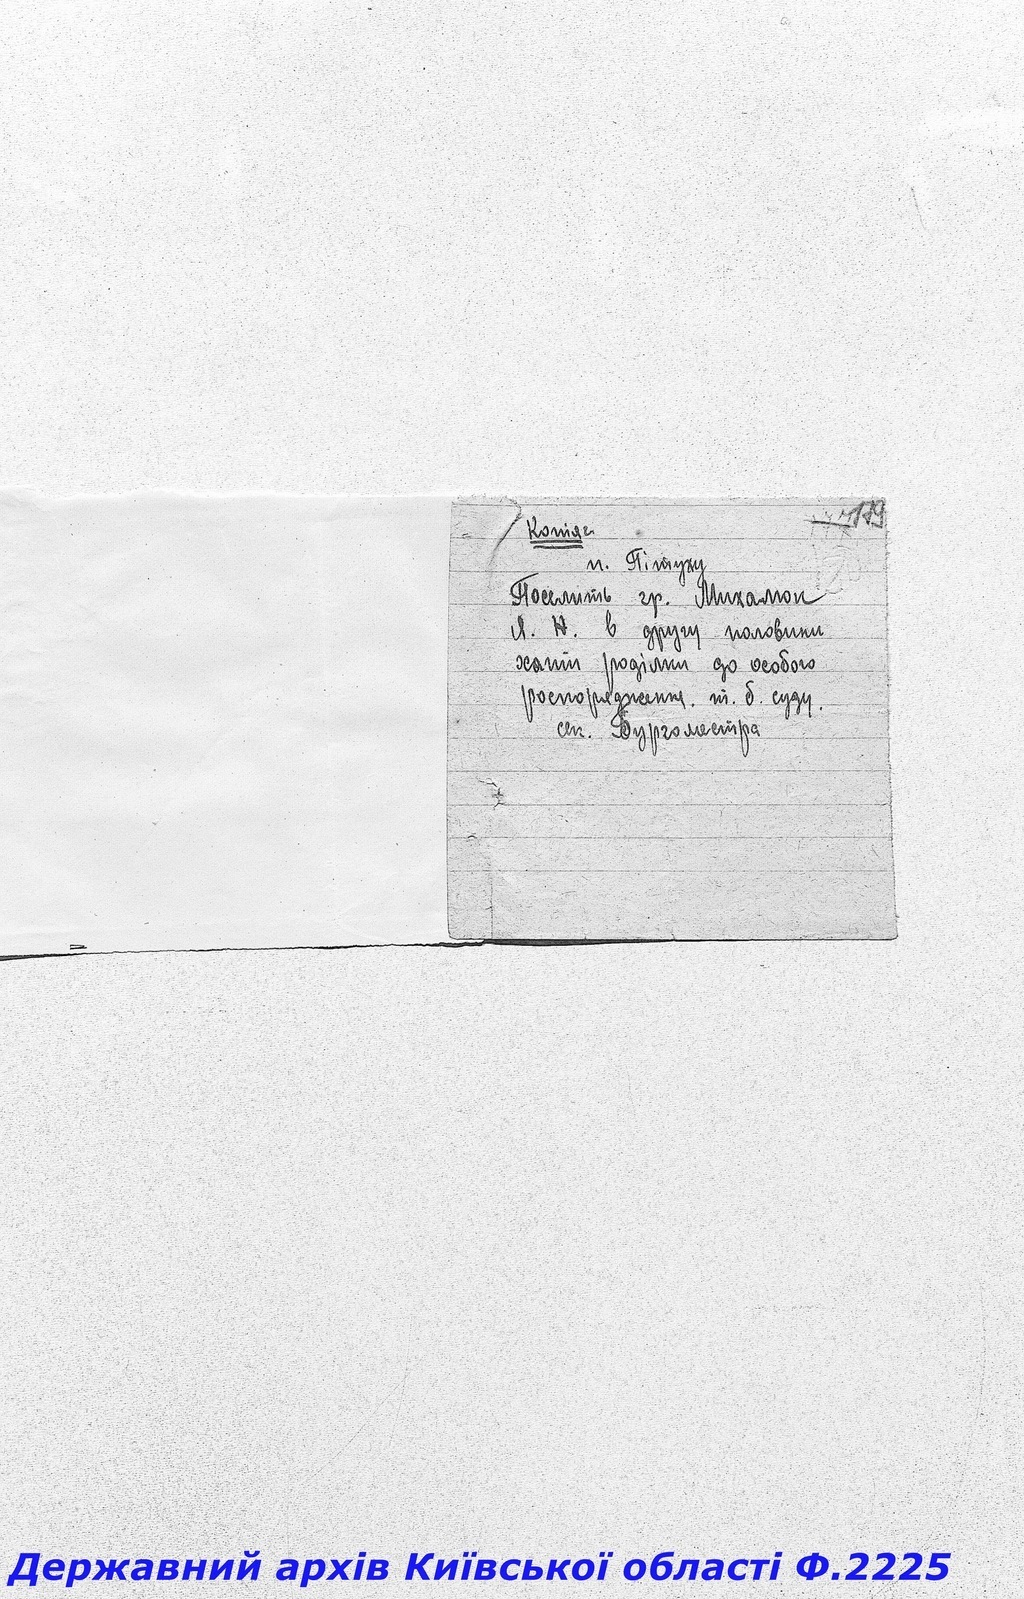 179
Копія
п. Пітуху
Поселить гр. Михалюк
Я. Н. в другу половини
хати роділки до особого
роспорядження. т. б. суду.
сек. Бургоместра
Державний архів Київської області Ф.2225